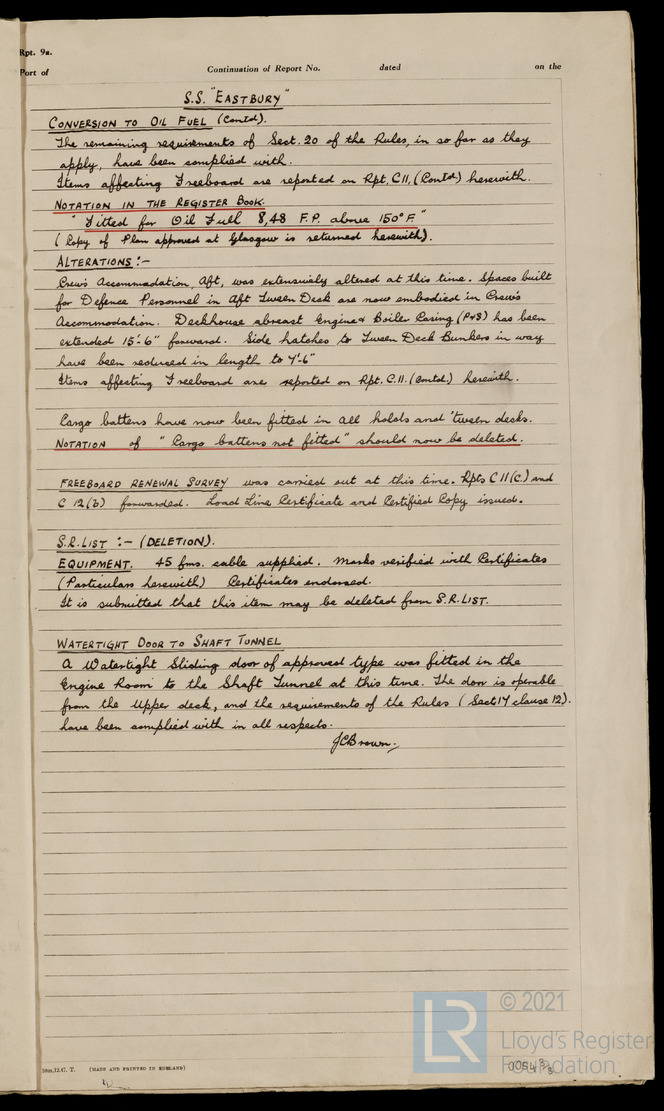 Rpt. 9a.
Port of Continuation of Report No. dated on the
S.S. "EASTBURY"
CONVERSION TO OIL FUEL (Contd).
The remaining requirements of Sect. 20 of the Rules, in so far as they
apply, have been complied with.
Items affecting Freeboard are reported on Rpt. C11, (Contd) herewith.
NOTATION IN THE REGISTER BOOK.
"Fitted for Oil Fuel 8,48 F.P. above 150°F."
(Copy of Plan approved at Glasgow is returned herewith).
ALTERATIONS:-
Crew's Accommodation, Aft, was extensively altered at this time. Spaces built
for Defence Personnel in Aft Tween Deck are now embodied in Crew's
Accommodation. Deckhouse abreast Engine & Boiler Casing (P&S) has been
extended 15'-6" forward. Side hatches to Tween Deck Bunkers in way
have been reduced in length to 7'-6"
Items affecting Freeboard are reported on Rpt. C.11. (Contd.) herewith.
Cargo battens have now been fitted in all holds and 'tween decks.
NOTATION of "Cargo battens not fitted" should now be deleted.
FREEBOARD RENEWAL SURVEY was carried out at this time. Rpts C11(C.) and
C 12(b) forwarded. Load Line Certificate and Certified Copy issued.
S.R. LIST :- (DELETION).
EQUIPMENT. 45 fms. cable supplied. Marks verified with Certificates
(Particulars herewith) Certificates endorsed.
It is submitted that this item may be deleted from S.R. LIST.
WATERTIGHT DOOR TO SHAFT TUNNEL
A Watertight Sliding door of approved type was fitted in the
Engine Room to the Shaft Tunnel at this time. The door is operable
from the Upper deck, and the requirements of the Rules (Sect 17 clause 12).
have been complied with in all respects.
JCBrown.
LR © 2021
Lloyd's Register
Foundation
10m.12.47. T. (MADE AND PRINTED IN ENGLAND)
0054 3/3